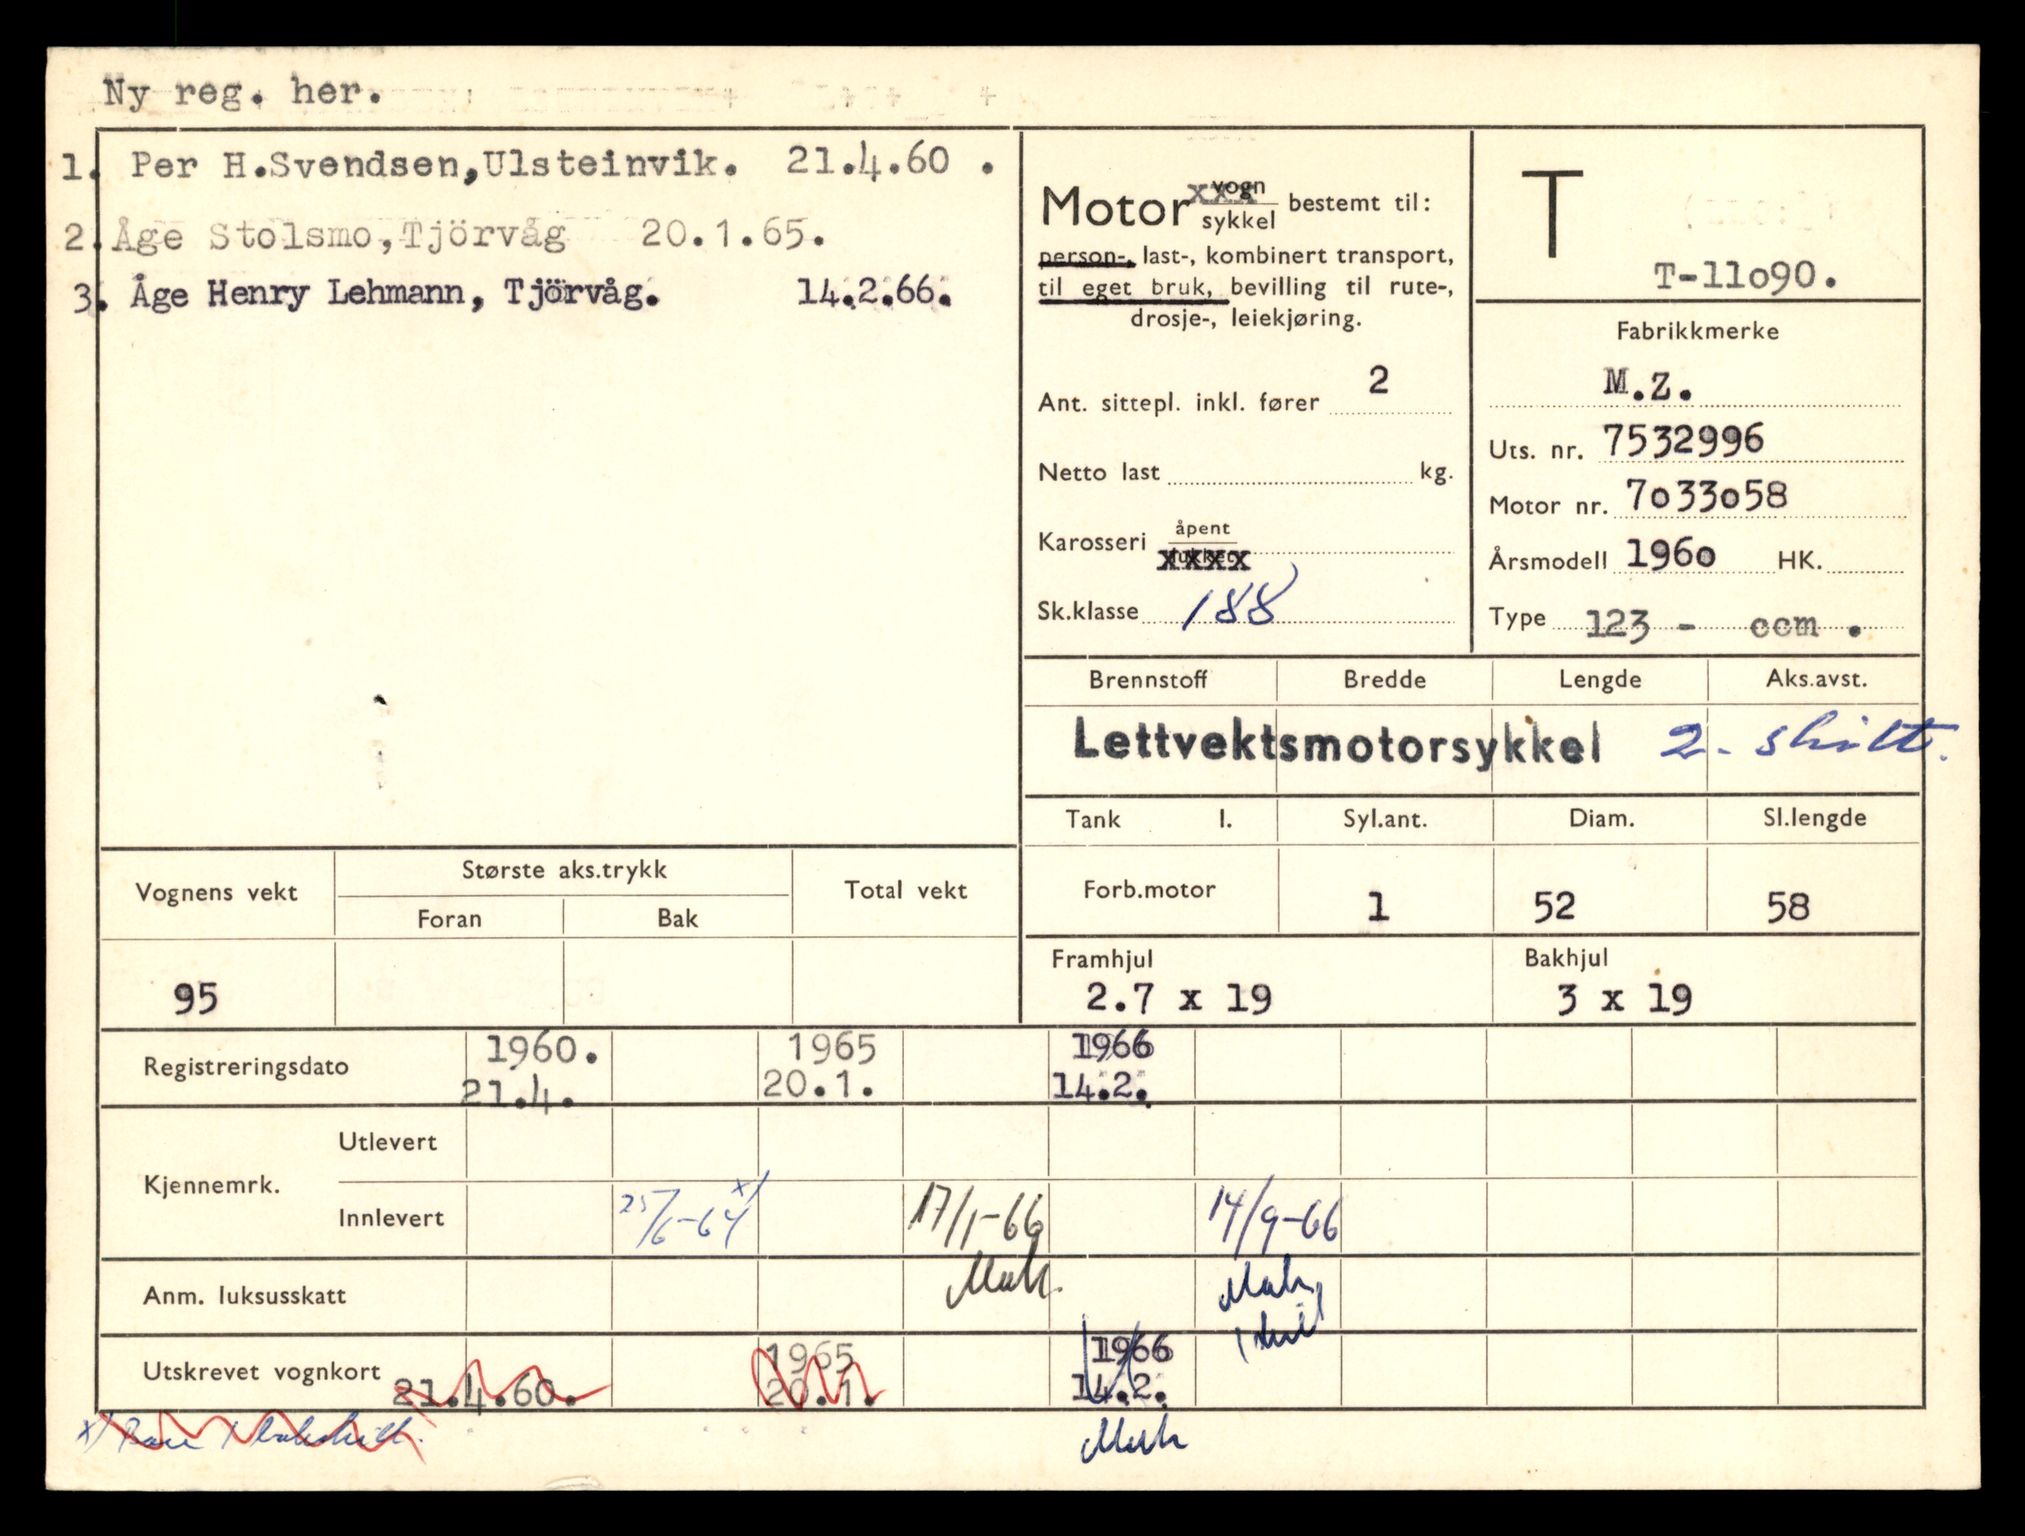 Ny reg. her.
1. Per H.Svendsen,Ulsteinvik. 21.4.60 .
2.Åge Stolsmo,Tjörvåg 20.1.65.
3. Åge Henry Lehmann, Tjörvåg. 14.2.66.
Motor vogn xxx
sykkel bestemt til:
person-, last-, kombinert transport,
til eget bruk, bevilling til rute-,
drosje-, leiekjøring.
Ant. sittepl. inkl. fører 2
Netto last kg.
Karosseri åpent
xxxx
Sk.klasse 188
T
T-11o90.
Fabrikkmerke
M.Z.
Uts. nr. 7532996
Motor nr. 7o33o58
Årsmodell 196o HK.
Type 123 - ccm .
Brennstoff Bredde Lengde Aks.avst.
Lettvektsmotorsykkel 2 - skilt.
Tank l. Syl.ant. Diam. Sl.lengde
Forb.motor 1 52 58
Framhjul Bakhjul
2.7 x 19 3 x 19
Vognens vekt Største aks.trykk Total vekt
Foran Bak
95
Registreringsdato 1960. 1965 1966
21.4. 20.1. 14.2.
Kjennemrk. Utlevert
Innlevert 25/6-64 x) 17/1-66 14/9-66
Anm. luksusskatt
Utskrevet vognkort 21.4.60. 1965 1966
20.1. 14.2.
x) Bare 1 bakskilt.